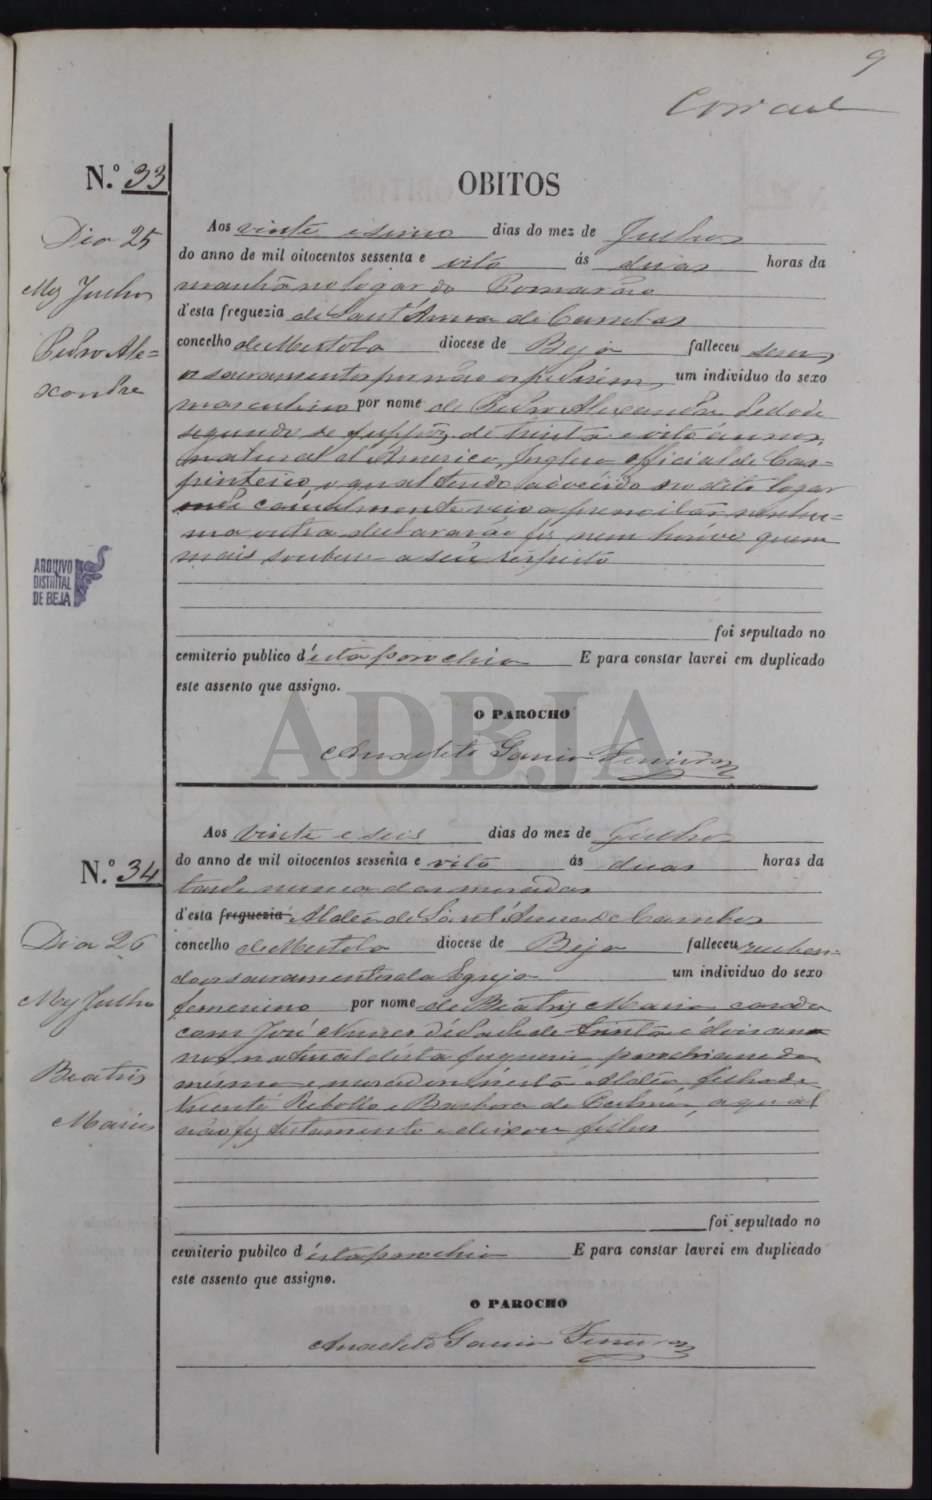 9
N.º 33
OBITOS
Dia 25
Mez Julho
Pedro Ale=
xandre
Aos vinte e sinco dias do mez de Julho
do anno de mil oitocentos sessenta e oito ás duas horas da
manhã no logar do Pomarão
d'esta freguezia de Sant'Anna de Cambas
concelho de Mertola diocese de Beja falleceu sem
os sacramentos por não os pedirem um individuo do sexo
masculino por nome de Pedro Alexandre de Idade
segundo se suppõz de trinta e oito annos,
natural d'America, Inglez official de Car=
pinteiro, o qual tendo adoecido no dito logar
nenhu=
ma outra declaração fiz nem houve quem
mais soubesse a seu respeito
foi sepultado no
cemiterio publico d'esta parochia E para constar lavrei em duplicado
este assento que assigno.
O PAROCHO
Anacleto Garcia
ARQUIVO
DISTRITAL
DE BEJA
ADBJA
N.º 34
Dia 26
Mez Julho
Beatris
Maria
Aos vinte e seis dias do mez de Julho
do anno de mil oitocentos sessenta e oito ás duas horas da
tarde
d'esta freguezia Aldêa de Sant'Anna de Cambas
concelho de Mertola diocese de Beja falleceu receben=
do os sacramentos da Egreja um individuo do sexo
femenino por nome de Beatris Maria casada
com José Nunes d'Idade de trinta e dois an
nos natural desta freguezia parochiana da
mesma e moradora n'esta Aldêa, filha de
Vicente Rebollo e Barbora a qual
não fez testamento e deixou filhos
foi sepultado no
cemiterio publico d'esta parochia E para constar lavrei em duplicado
este assento que assigno.
O PAROCHO
Anacleto Garcia